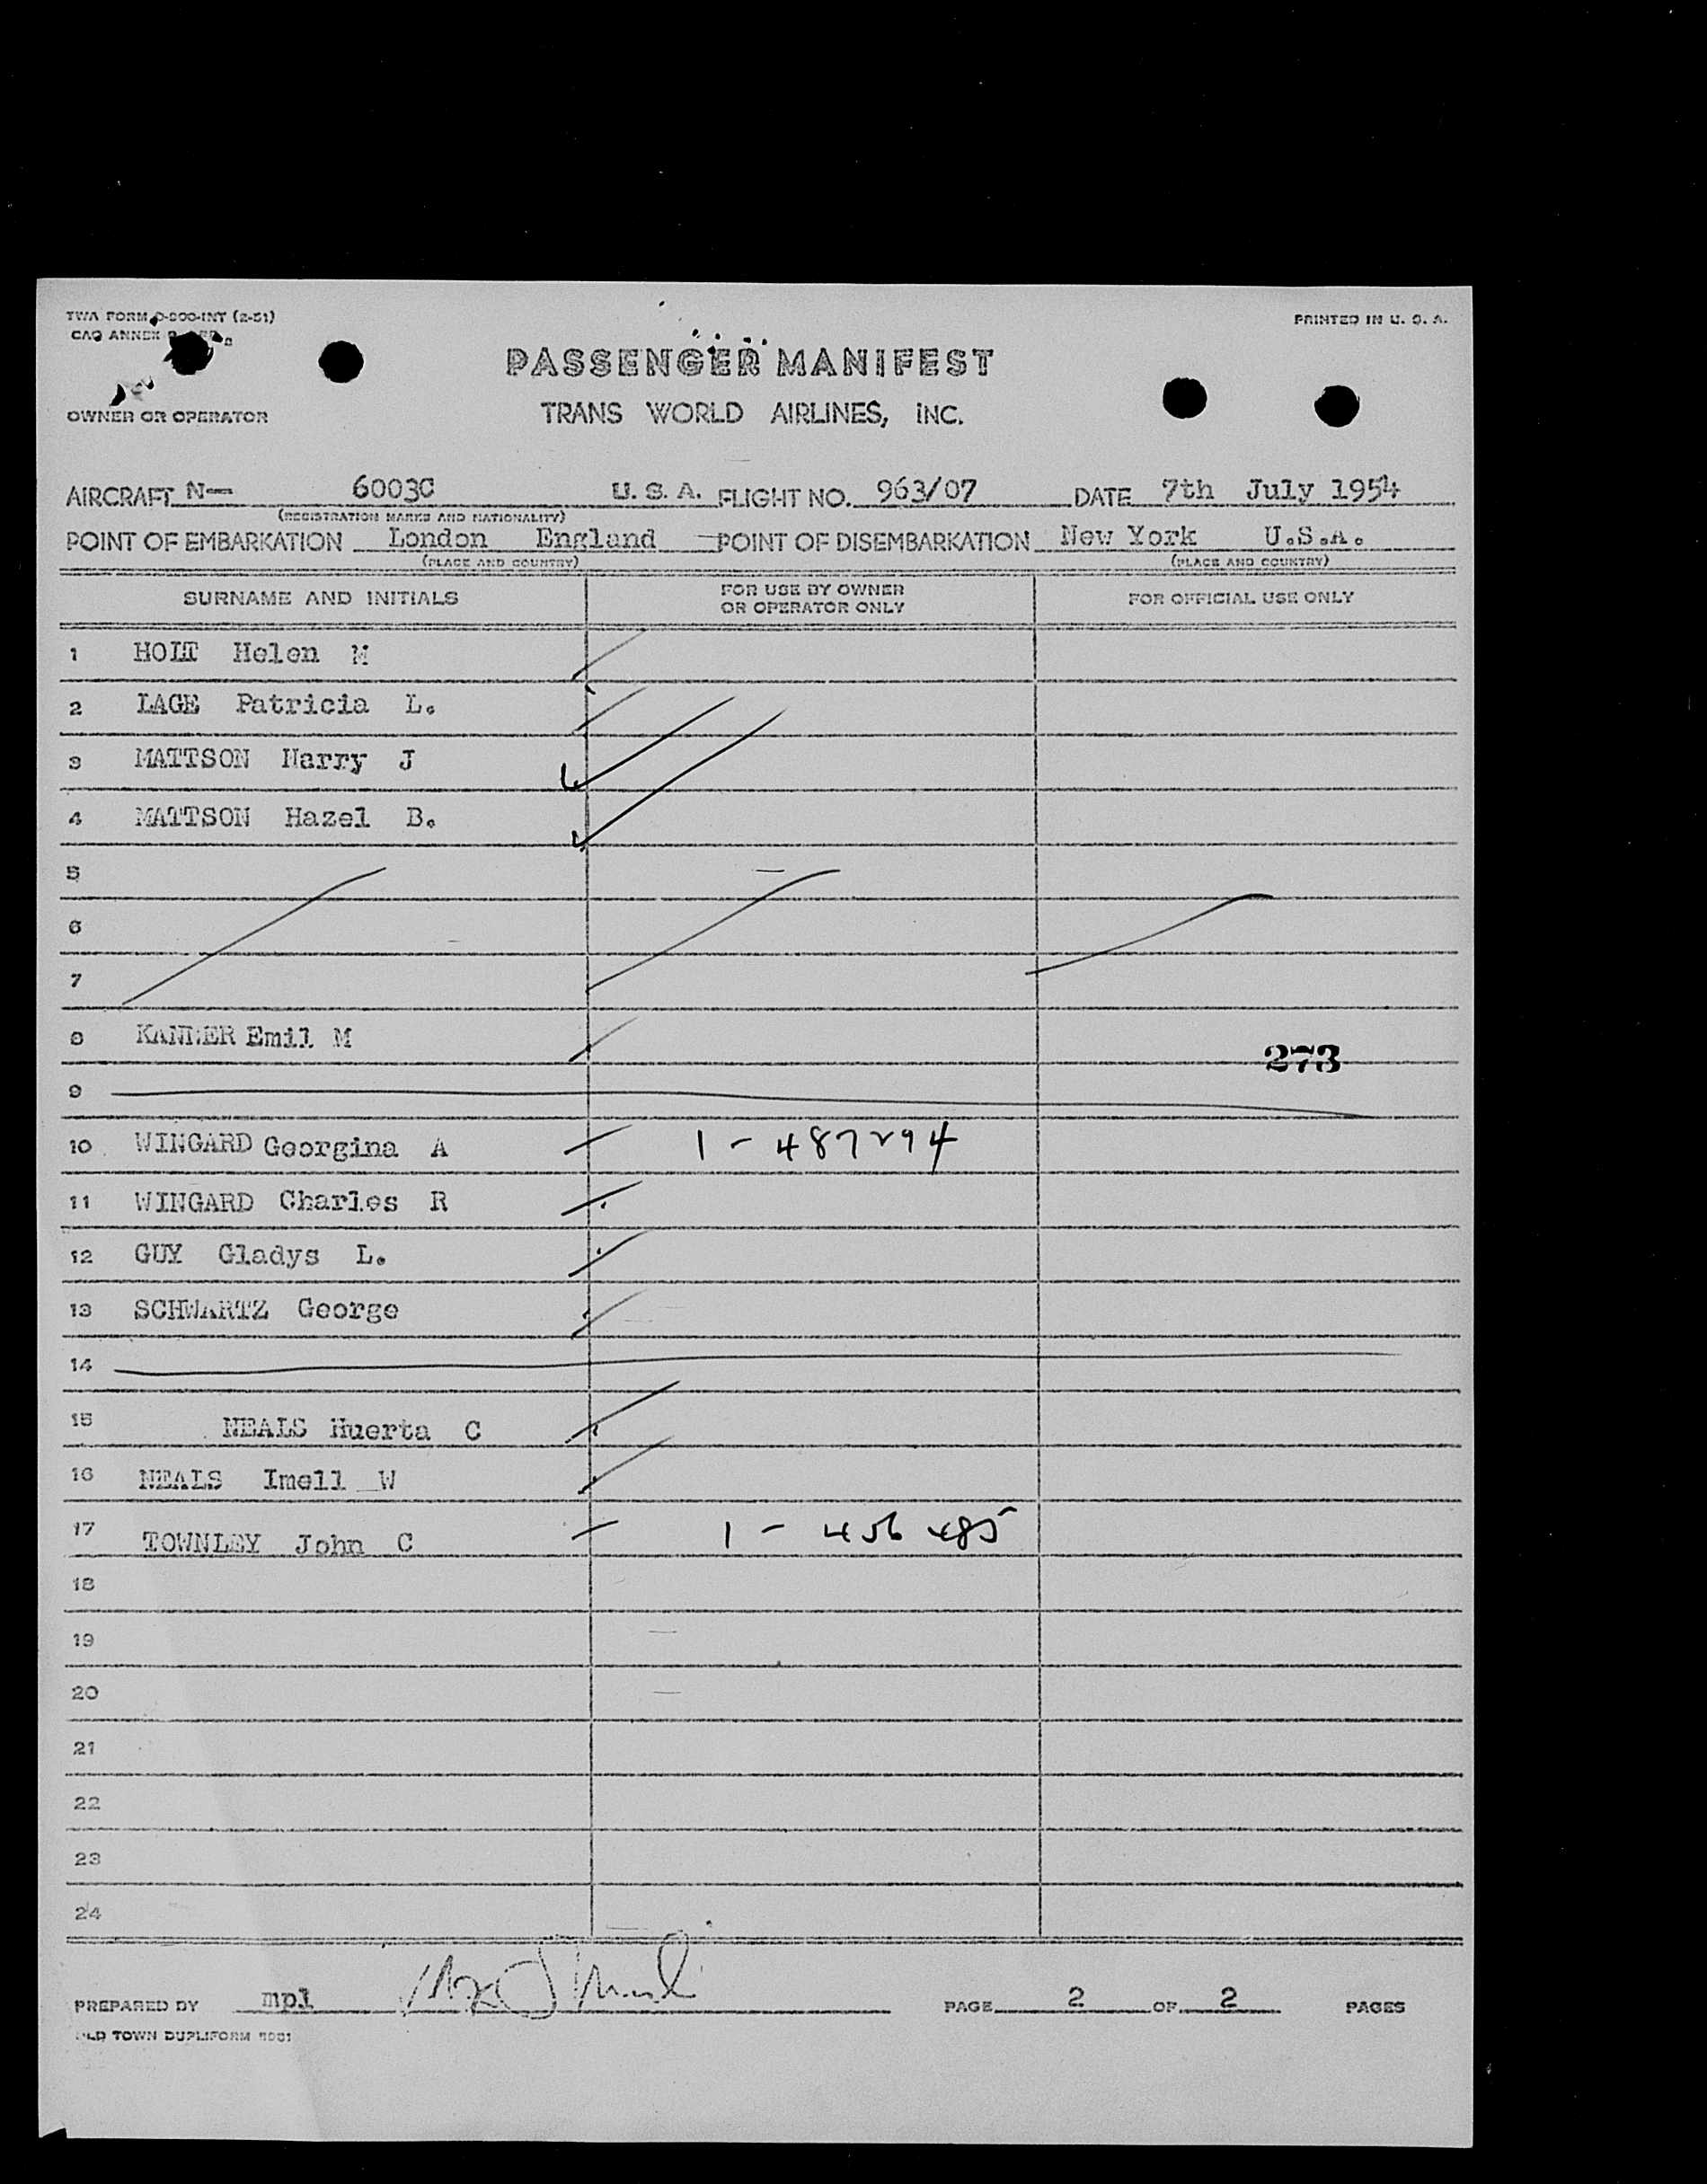 TWA FORM O-200-INT (2-51)
PRINTED IN U. S. A.
CAO ANNEX
PASSENGER MANIFEST
OWNER OR OPERATOR
TRANS WORLD AIRLINES, INC.
AIRCRAFT N— 6003C U. S. A. FLIGHT NO. 963/07 DATE 7th July 1954
(REGISTRATION MARKS AND NATIONALITY)
POINT OF EMBARKATION London England POINT OF DISEMBARKATION New York U.S.A.
(PLACE AND COUNTRY) (PLACE AND COUNTRY)
SURNAME AND INITIALS
FOR USE BY OWNER
OR OPERATOR ONLY
FOR OFFICIAL USE ONLY
1 HOLT Helen M
2 LAGE Patricia L.
3 MATTSON Harry J
4 MATTSON Hazel B.
5
6
7
8 KANNER Emil M
273
9
10 WINGARD Georgina A 1 - 487294
11 WINGARD Charles R
12 GUY Gladys L.
13 SCHWARTZ George
14
15 NEALS Huerta C
16 NEALS Imell W
17 TOWNLEY John C 1 - 456 485
18
19
20
21
22
23
24
PREPARED BY mpl PAGE 2 OF 2 PAGES
OLD TOWN DUPLIFORM